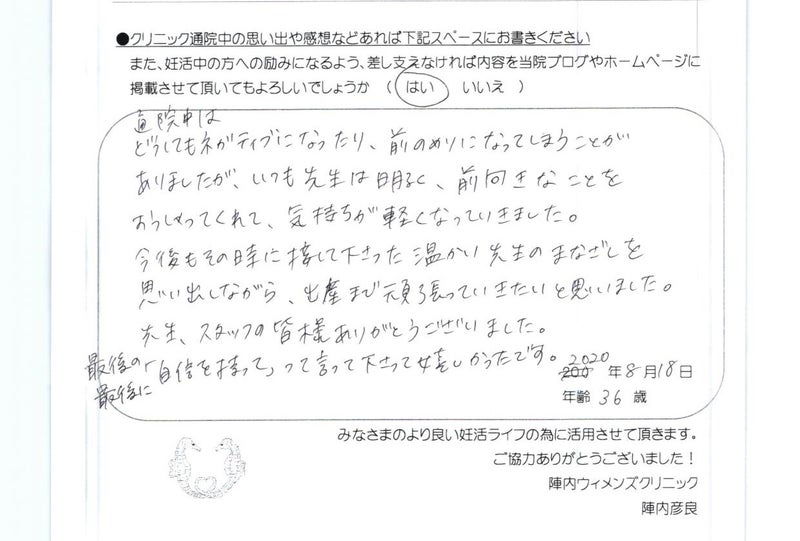 ●クリニック通院中の思い出や感想などあれば下記スペースにお書きください
また、妊活中の方への励みになるよう、差し支えなければ内容を当院ブログやホームページに
掲載させて頂いてもよろしいでしょうか （ はい　いいえ ）
通院中は
どうしてもネガティブになったり、前のめりになってしまうことが
ありましたが、いつも先生は明るく、前向きなことを
おっしゃってくれて、気持ちが軽くなっていきました。
今後もその時に接して下さった温かい先生のまなざしを
思い出しながら、出産まで頑張っていきたいと思いました。
先生、スタッフの皆様ありがとうございました。
最後の「自信を持って」って言って下さって嬉しかったです。
最後に
2020
200 年8月18日
年齢 36 歳
みなさまのより良い妊活ライフの為に活用させて頂きます。
ご協力ありがとうございました！
陣内ウィメンズクリニック
陣内彦良